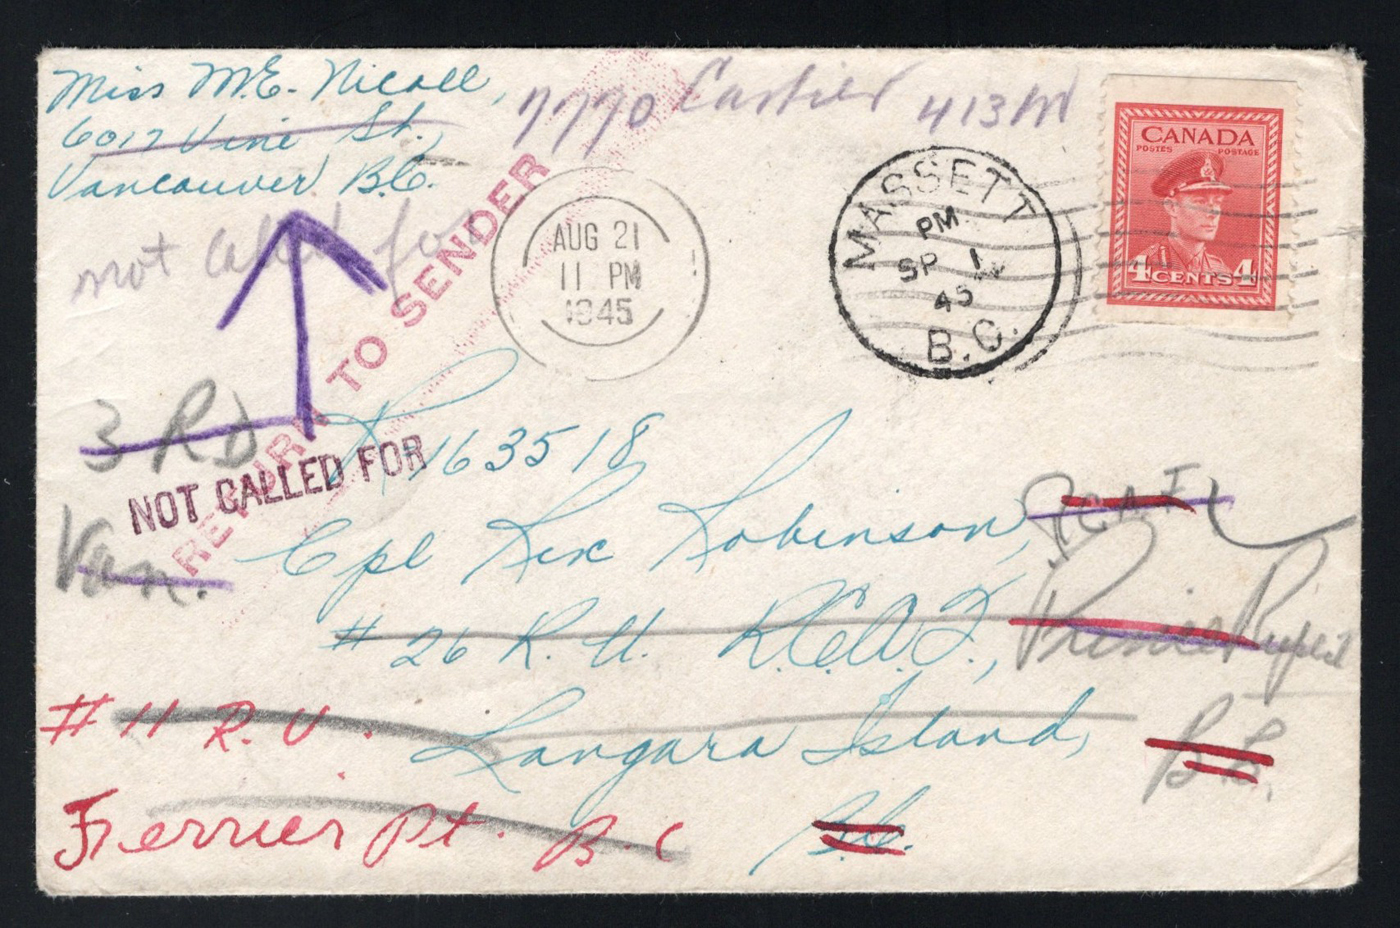 Miss M.E. Nicoll,
6017 Vine St.,
Vancouver B.C.
7770 Cartier 413M
not called for
RETURN TO SENDER
AUG 21
11 PM
1945
MASSETT
PM
SP 1
45
B.C.
CANADA
POSTES POSTAGE
4 CENTS 4
3 RD
Van.
NOT CALLED FOR
R163518
Cpl Rex Robinson,
# 26 R.U. R.C.A.F.,
Langara Island,
B.C.
R.C.A.F.
Prince Rupert
B.C.
# 11 R.U.
Ferrier Pt. B.C